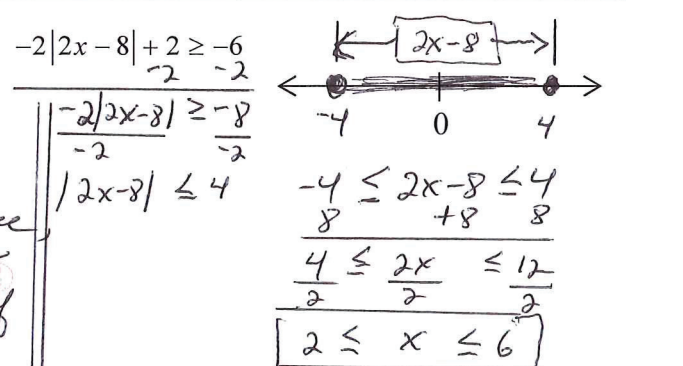 -2|2x - 8| + 2 ≥ -6
-2 -2
-2|2x-8| ≥ -8
-2 -2
|2x-8| ≤ 4
2x-8
-4 0 4
-4 ≤ 2x-8 ≤ 4
8 +8 8
4 ≤ 2x ≤ 12
2 2 2
2 ≤ x ≤ 6